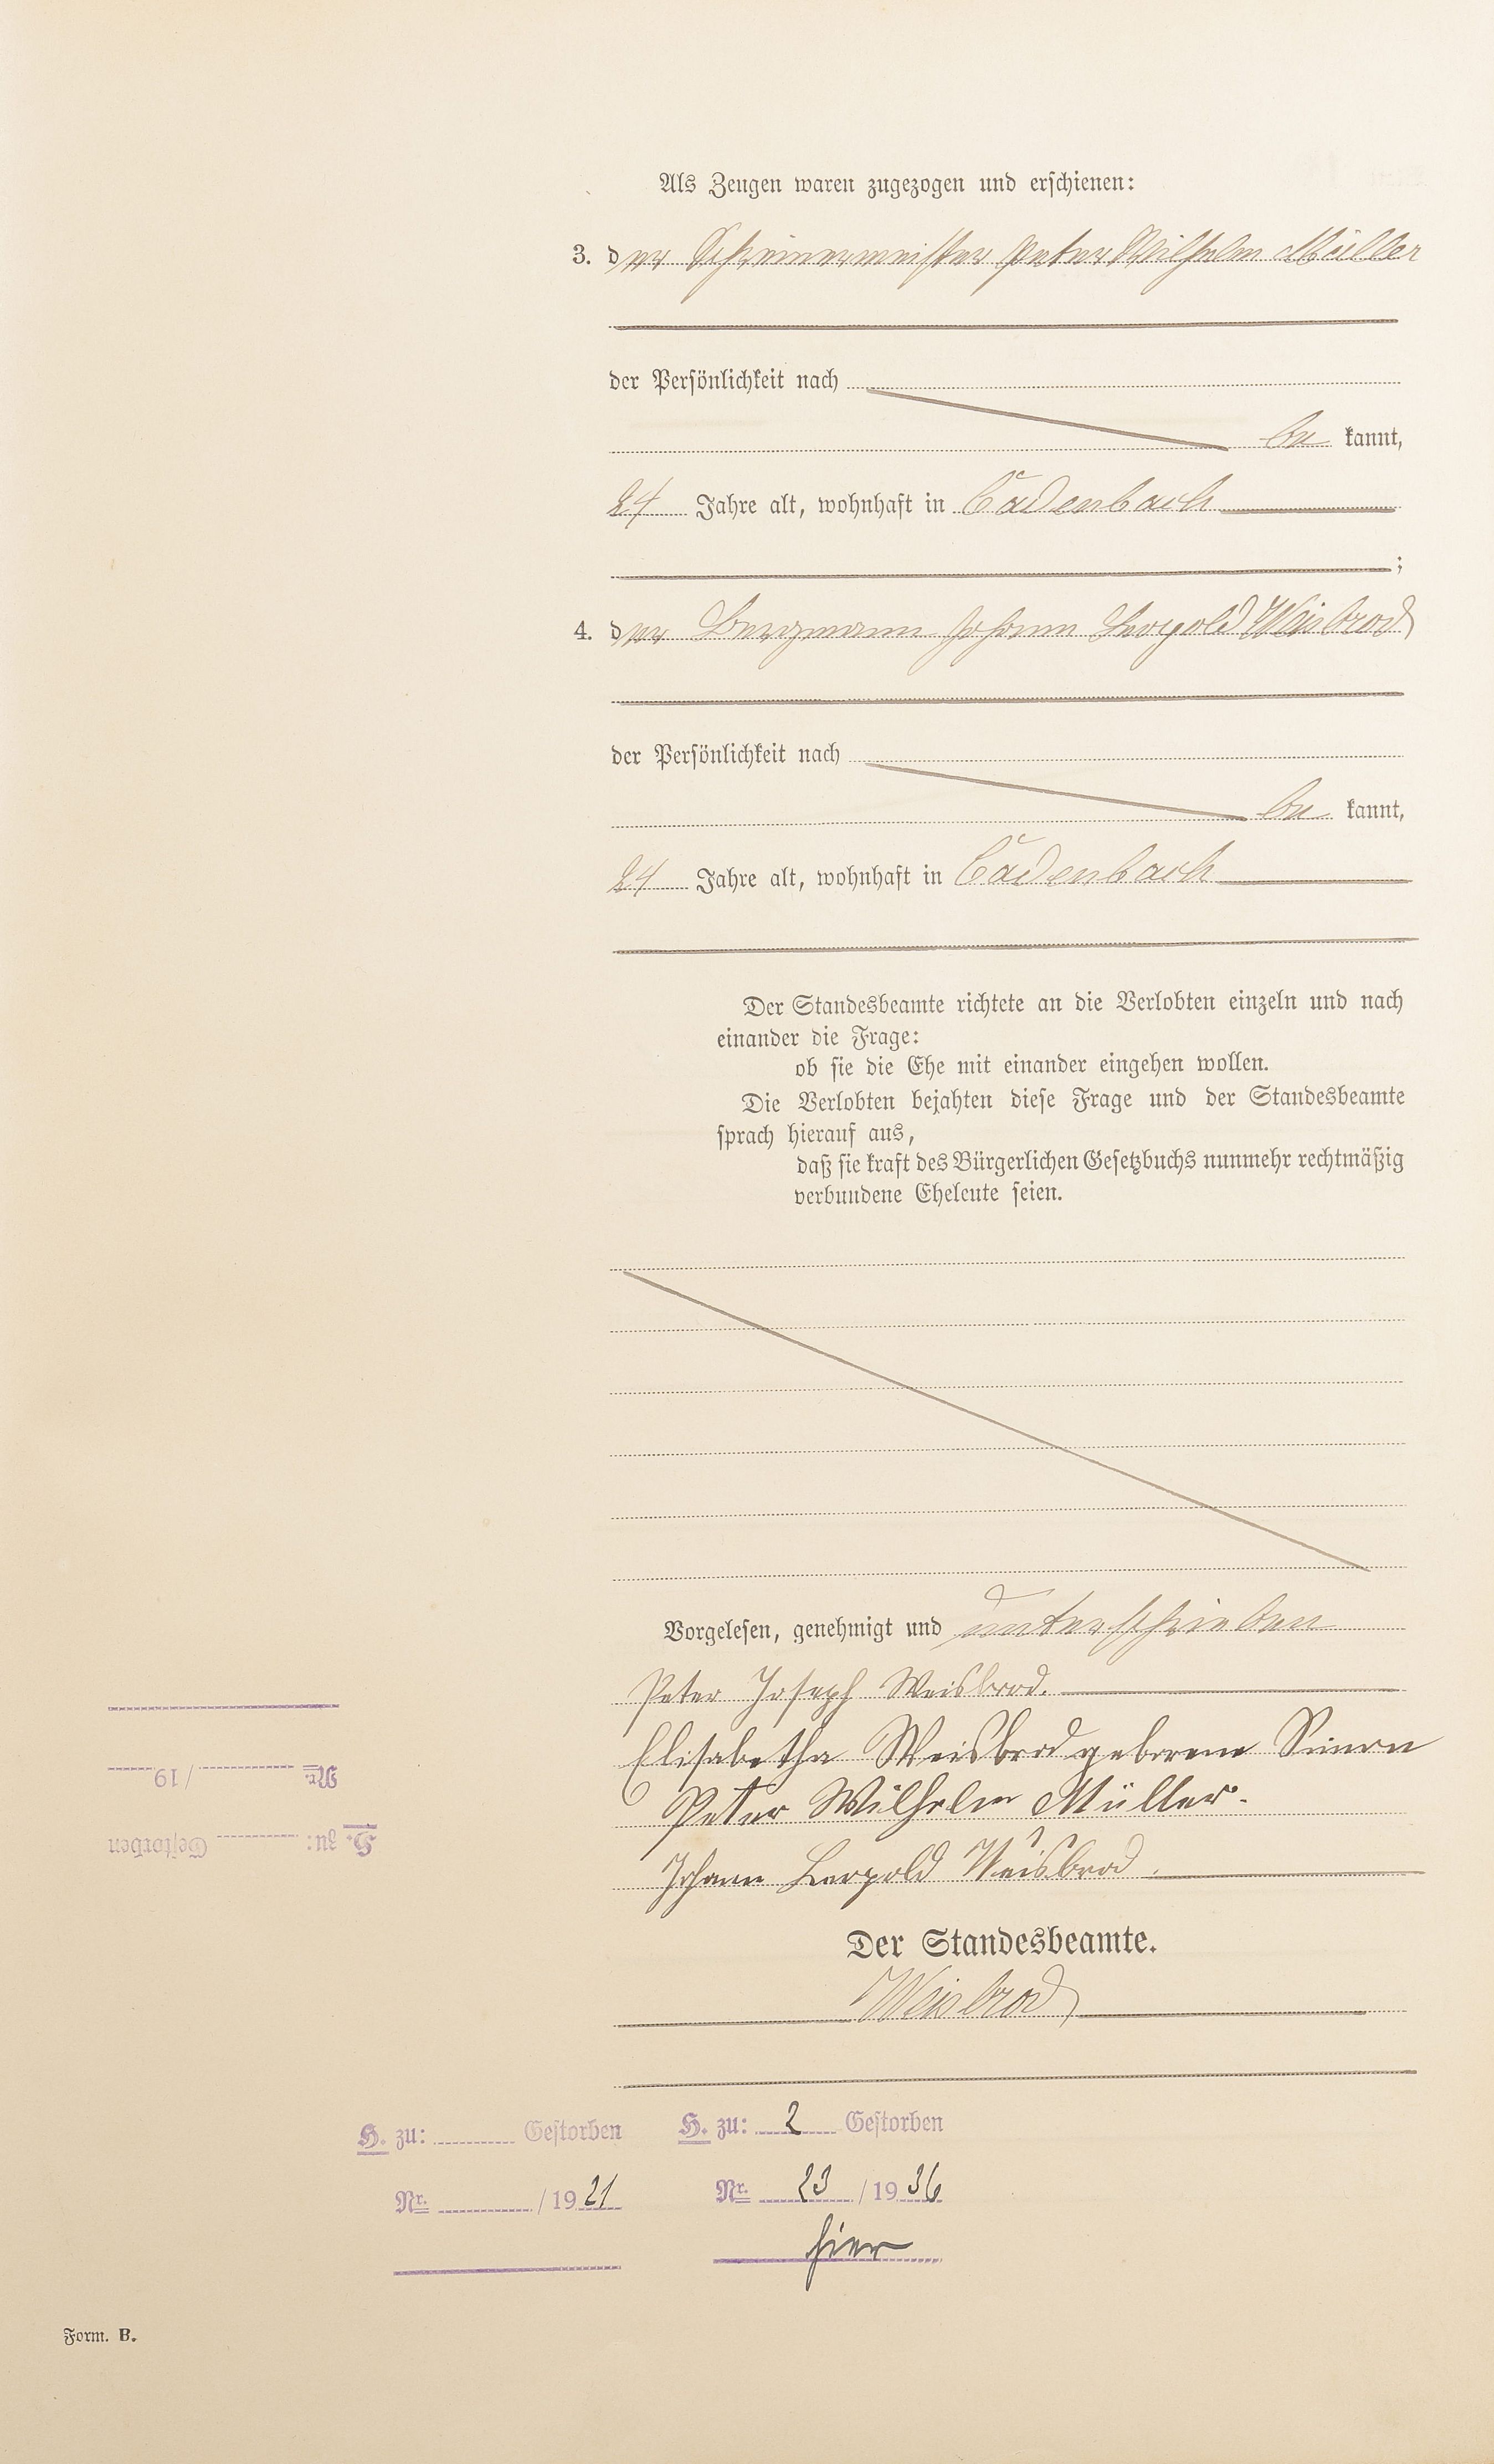 Als Zeugen waren zugezogen und erschienen:
3. der Schreinermeister Peter Wilhelm Müller
der Persönlichkeit nach
be kannt,
24 Jahre alt, wohnhaft in Cadenbach
;
4. der Bergmann Johann Leopold Weisbrod
der Persönlichkeit nach
be kannt,
24 Jahre alt, wohnhaft in Cadenbach
Der Standesbeamte richtete an die Verlobten einzeln und nach
einander die Frage:
ob sie die Ehe mit einander eingehen wollen.
Die Verlobten bejahten diese Frage und der Standesbeamte
sprach hierauf aus,
daß sie kraft des Bürgerlichen Gesetzbuchs nunmehr rechtmäßig
verbundene Eheleute seien.
Vorgelesen, genehmigt und unterschrieben
Peter Joseph Weisbrod.
Elisabetha Weisbrod geborene Simon
Peter Wilhelm Müller.
Johann Leopold Weisbrod.
Der Standesbeamte.
Weisbrod
H. zu: Gestorben
Nr. /19
H. zu: Gestorben
Nr. /1921
H. zu: 2 Gestorben
Nr. 23 /1936
hier
Form. B.